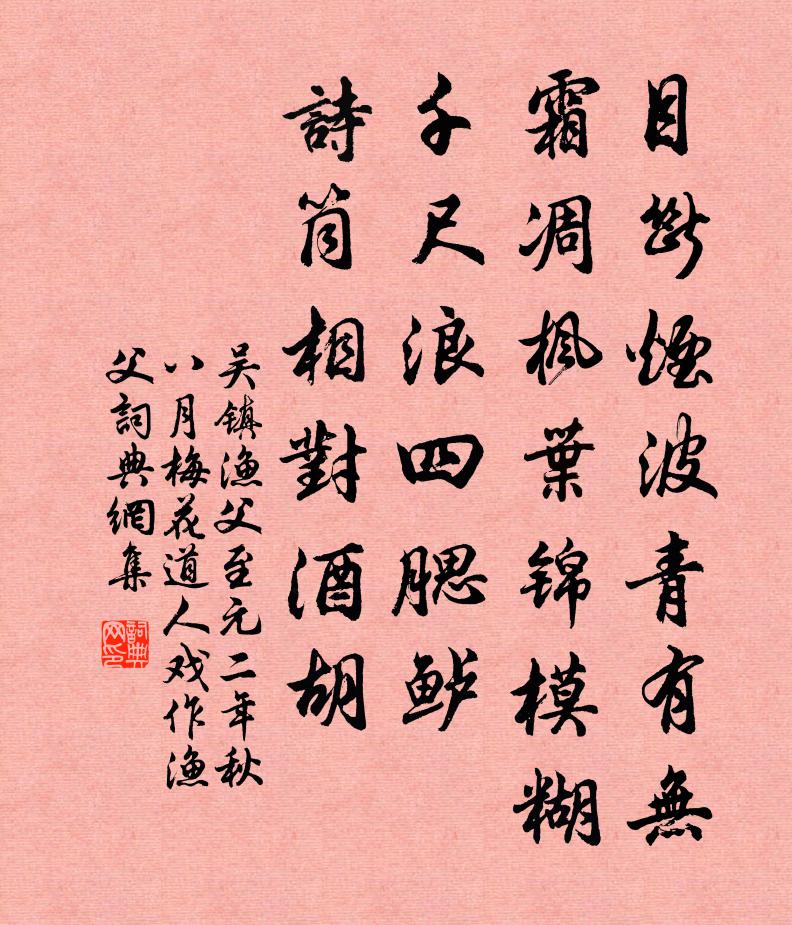 目断煙波青有無
霜凋楓葉锦模糊
千尺浪四腮鲈
詩筒相對酒胡
吴镇渔父至元二年秋
八月梅花道人戏作渔
父詞典網集
詞典网印